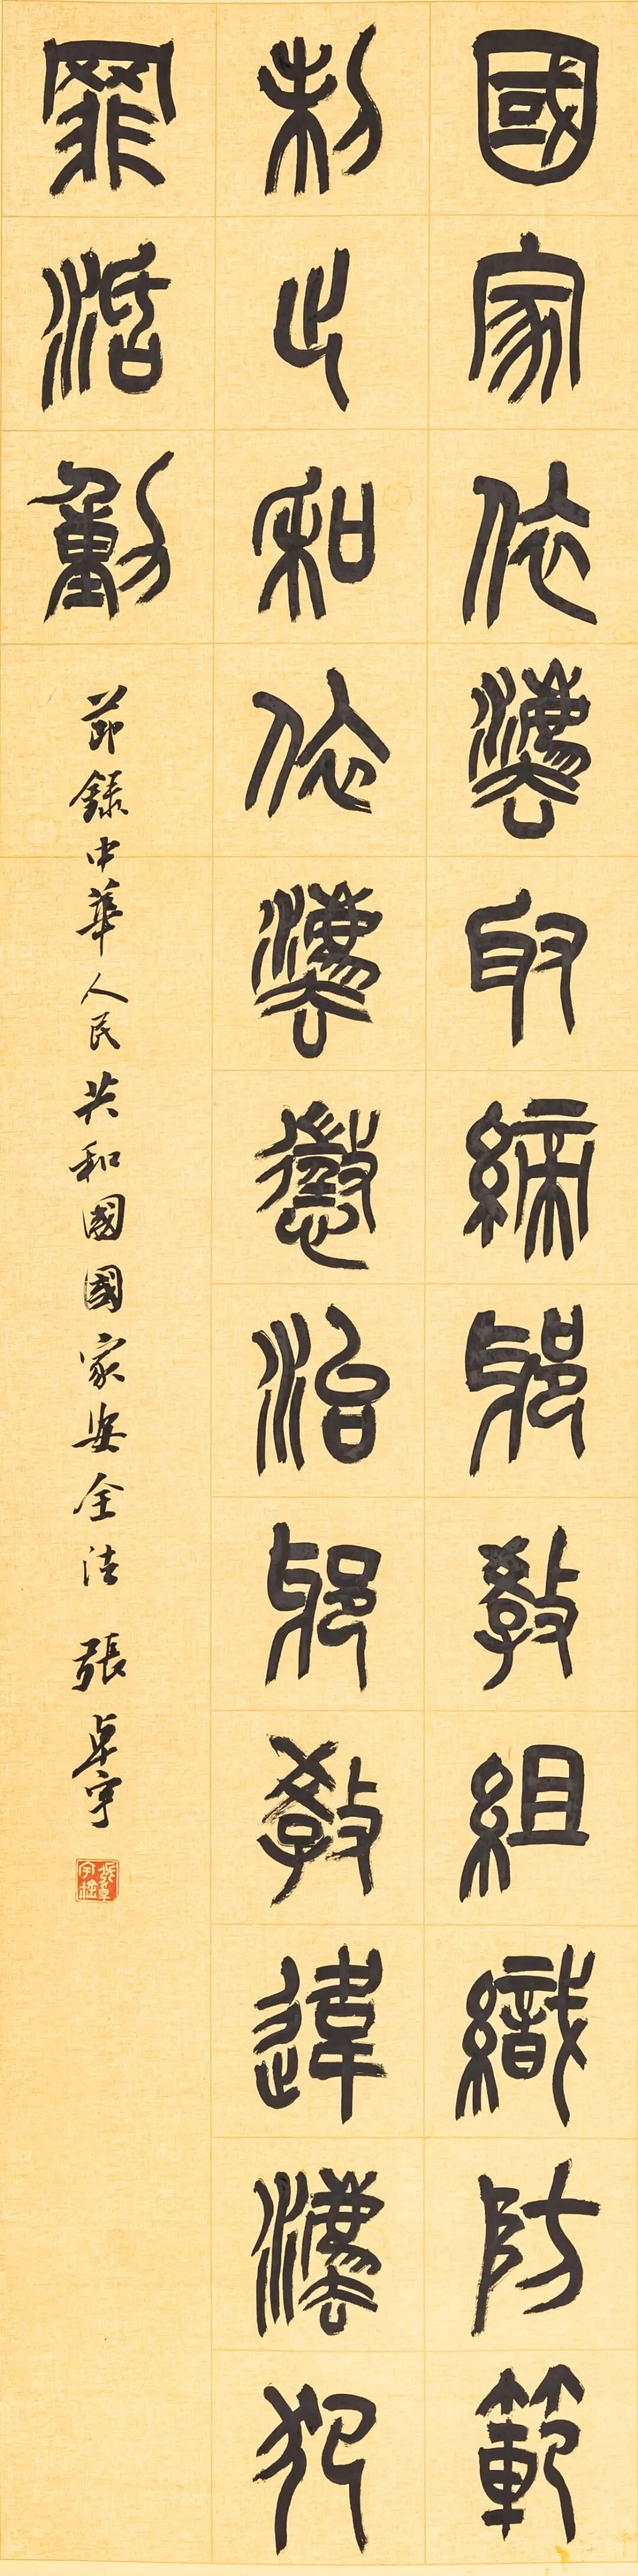 國家依灋取締邪教組織防範
制止和依灋懲治邪教違灋犯
罪活動
節錄中華人民共和國國家安全法 張卓宇